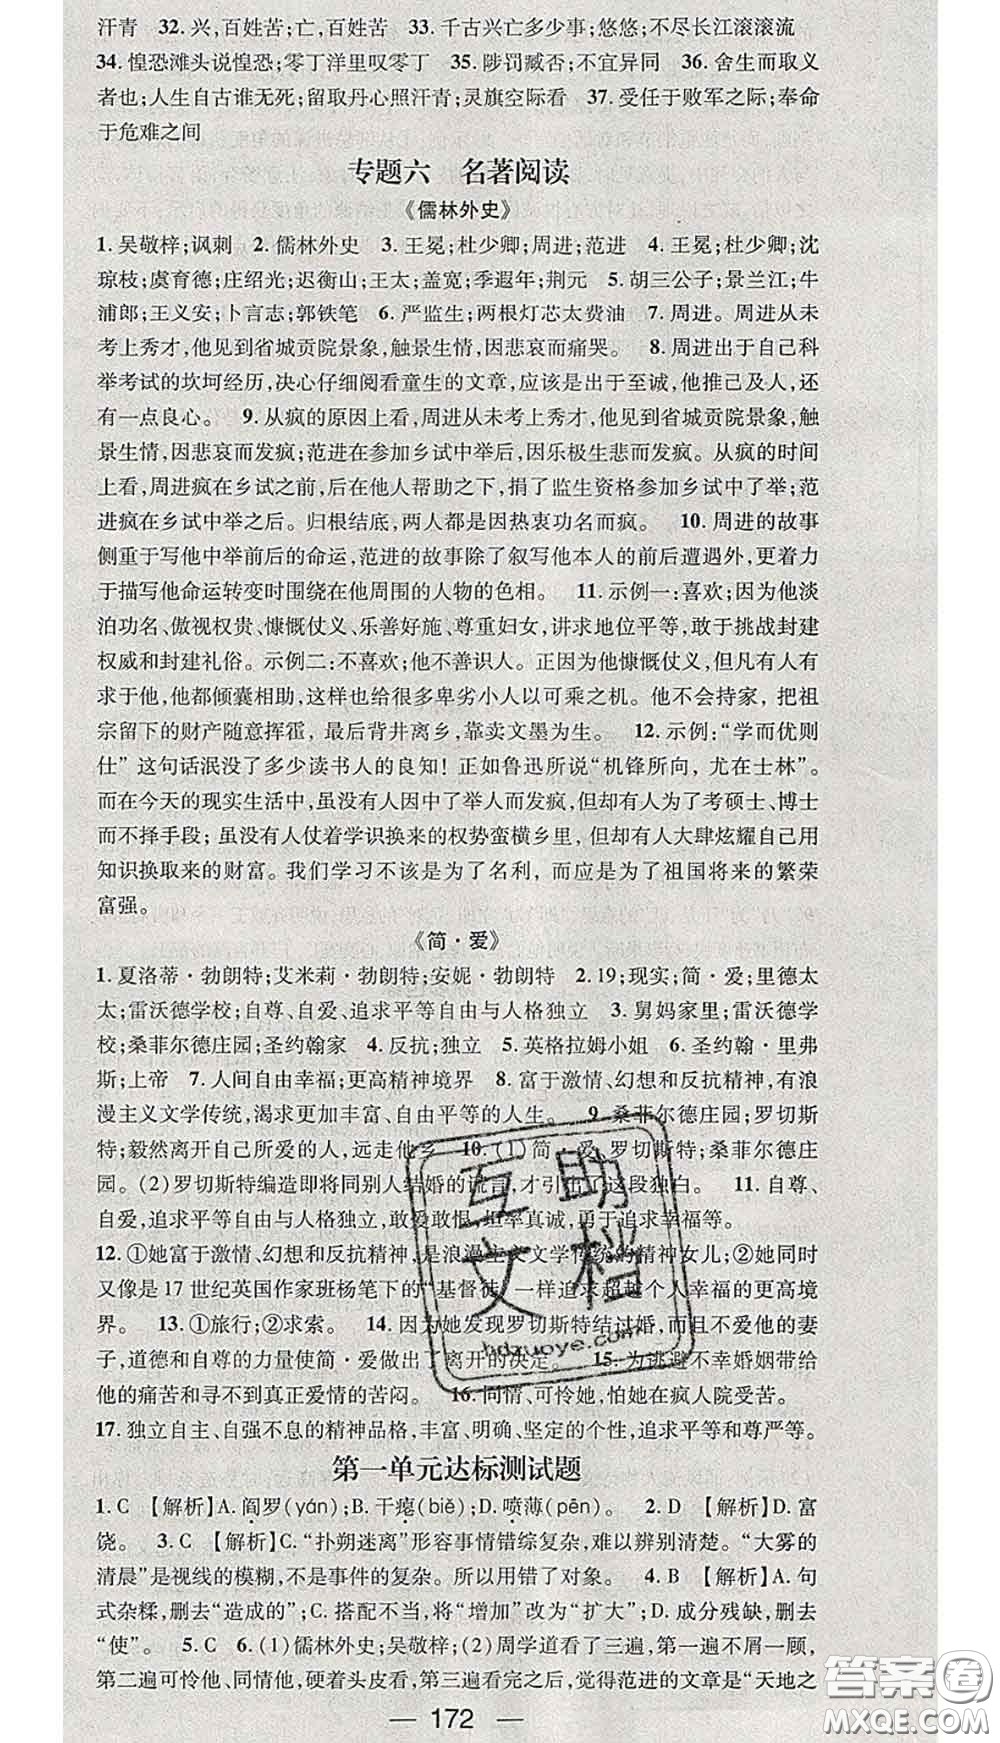 汗青　32. 兴,百姓苦;亡,百姓苦　33. 千古兴亡多少事;悠悠;不尽长江滚滚流
34. 惶恐滩头说惶恐;零丁洋里叹零丁　35. 陟罚臧否;不宜异同　36. 舍生而取义
者也;人生自古谁无死;留取丹心照汗青;灵旗空际看　37. 受任于败军之际;奉命
于危难之间
专题六　名著阅读
《儒林外史》
1. 吴敬梓;讽刺　2. 儒林外史　3. 王冕;杜少卿;周进;范进　4. 王冕;杜少卿;沈
琼枝;虞育德;庄绍光;迟衡山;王太;盖宽;季遐年;荆元　5. 胡三公子;景兰江;牛
浦郎;王义安;卜言志;郭铁笔　6. 严监生;两根灯芯太费油　7. 周进。周进从未
考上秀才,他见到省城贡院景象,触景生情,因悲哀而痛哭。　8. 周进出于自己科
举考试的坎坷经历,决心仔细阅看童生的文章,应该是出于至诚,他推己及人,还
有一点良心。　9. 从疯的原因上看,周进从未考上秀才,他见到省城贡院景象,触
景生情,因悲哀而发疯;范进在参加乡试中举后,因乐极生悲而发疯。从疯的时间
上看,周进疯在乡试之前,后在他人帮助之下,捐了监生资格参加乡试中了举;范
进疯在乡试中举之后。归根结底,两人都是因热衷功名而疯。　10. 周进的故事
侧重于写他中举前后的命运,范进的故事除了叙写他本人的前后遭遇外,更着力
于描写他命运转变时围绕在他周围的人物的色相。　11. 示例一:喜欢;因为他淡
泊功名、傲视权贵、慷慨仗义、乐善好施、尊重妇女,讲求地位平等,敢于挑战封建
权威和封建礼俗。示例二:不喜欢;他不善识人。正因为他慷慨仗义,但凡有人有
求于他,他都倾囊相助,这样也给很多卑劣小人以可乘之机。他不会持家,把祖
宗留下的财产随意挥霍,最后背井离乡,靠卖文墨为生。　12. 示例:“学而优则
仕”这句话泯没了多少读书人的良知!正如鲁迅所说“机锋所向,尤在士林”。
而在今天的现实生活中,虽没有人因中了举人而发疯,但却有人为了考硕士、博士
而不择手段;虽没有人仗着学识换来的权势蛮横乡里,但却有人大肆炫耀自己用
知识换取来的财富。我们学习不该是为了名利,而应是为了祖国将来的繁荣
富强。
《简·爱》
1. 夏洛蒂·勃朗特;艾米莉·勃朗特;安妮·勃朗特　2. 19;现实;简·爱;里德太
太;雷沃德学校;自尊、自爱、追求平等自由与人格独立　3. 舅妈家里;雷沃德学
校;桑菲尔德庄园;圣约翰家　4. 反抗;独立　5. 英格拉姆小姐　6. 圣约翰·里弗
斯;上帝　7. 人间自由幸福;更高精神境界　8. 富于激情、幻想和反抗精神,有浪
漫主义文学传统,渴求更加丰富、自由平等的人生。　9. 桑菲尔德庄园;罗切斯
特;毅然离开自己所爱的人,远走他乡　10. (1)简·爱;罗切斯特;桑菲尔德庄
园。(2)罗切斯特编造即将同别人结婚的谎言,才引出了这段独白。　11. 自尊、
自爱,追求平等自由与人格独立,敢爱敢恨,坦率真诚,勇于追求幸福等。
12. ①她富于激情、幻想和反抗精神,是浪漫主义文学传统的精神女儿;②她同时
又像是 17 世纪英国作家班杨笔下的“基督徒”一样追求超越个人幸福的更高境
界。　13. ①旅行;②求索。　14. 因为她发现罗切斯特结过婚,而且不爱他的妻
子,道德和自尊的力量使简·爱做出了离开的决定。　15. 为逃避不幸婚姻带给
他的痛苦和寻不到真正爱情的苦闷。　16. 同情、可怜她,怕她在疯人院受苦。
17. 独立自主、自强不息的精神品格,丰富、明确、坚定的个性,追求平等和尊严等。
第一单元达标测试题
1. C　【解析】A. 阎罗(yán);B. 干瘪(biě);D. 喷薄(pēn)。　2. D　【解析】D. 富
饶。　3. C　【解析】C.“扑朔迷离”形容事情错综复杂,难以辨别清楚。“大雾的
清晨”是视线的模糊,不是事件的复杂。所以用错了对象。　4. B　【解析】A. 句
式杂糅,删去“造成的”;C. 搭配不当,将“增加”改为“扩大”;D. 成分残缺,删去
“使”。　5. C　6. (1)儒林外史;吴敬梓;(2)周学道看了三遍,第一遍不屑一顾,
第二遍可怜他、同情他,硬着头皮看,第三遍看完之后,觉得范进的文章是“天地之
— 172 —
互助
文档
hdzuoye.com
答案圈
MXQE.COM